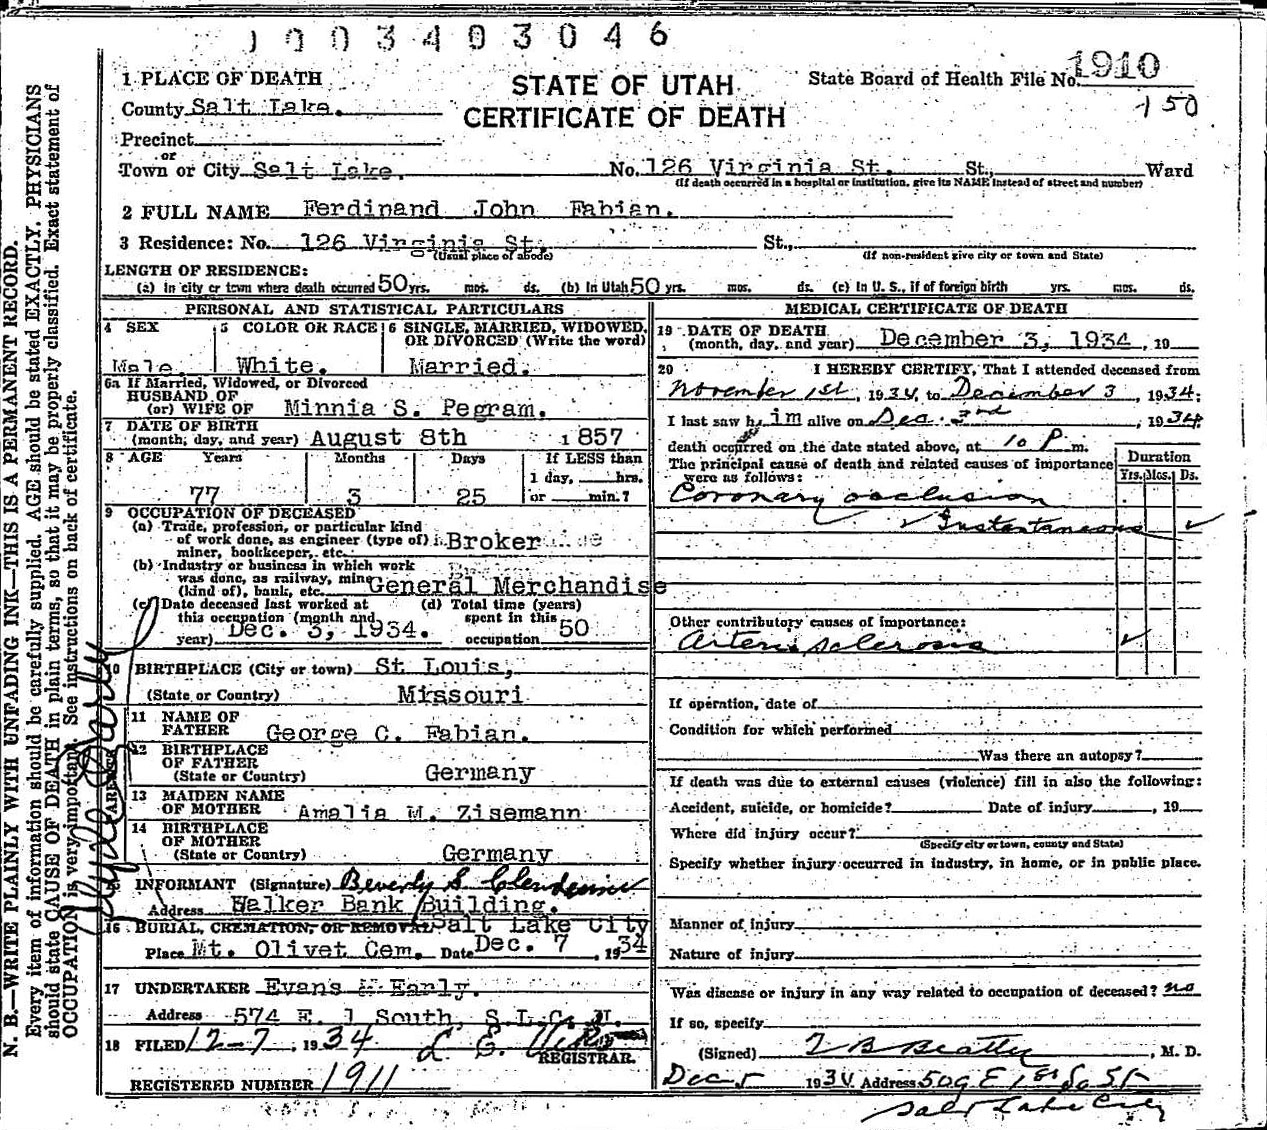 1003403046
1 PLACE OF DEATH
STATE OF UTAH
CERTIFICATE OF DEATH
State Board of Health File No. 1910
150
County Salt Lake.
Precinct
or
Town or City Salt Lake. No. 126 Virginia St. St., Ward
(If death occurred in a hospital or institution, give its NAME instead of street and number)
2 FULL NAME Ferdinand John Fabian.
3 Residence: No. 126 Virginia St. St.,
(Usual place of abode) (If non-resident give city or town and State)
LENGTH OF RESIDENCE:
(a) In city or town where death occurred 50 yrs. mos. ds. (b) In Utah 50 yrs. mos. ds. (c) In U. S., if of foreign birth yrs. mos. ds.
PERSONAL AND STATISTICAL PARTICULARS
4 SEX 5 COLOR OR RACE 6 SINGLE, MARRIED, WIDOWED, OR DIVORCED (Write the word)
Male. White. Married.
6a If Married, Widowed, or Divorced
HUSBAND OF
(or) WIFE OF Minnia S. Pegram.
7 DATE OF BIRTH
(month, day, and year) August 8th 1857
8 AGE Years Months Days If LESS than
1 day, hrs.
77 3 25 or min.?
9 OCCUPATION OF DECEASED
(a) Trade, profession, or particular kind
of work done, as engineer (type of) Broker
miner, bookkeeper, etc.
(b) Industry or business in which work
was done, as railway, mine
(kind of), bank, etc. General Merchandise
(c) Date deceased last worked at (d) Total time (years)
this occupation (month and spent in this
year) Dec. 3, 1934. occupation 50
10 BIRTHPLACE (City or town) St. Louis,
(State or Country) Missouri
PARENTS
11 NAME OF
FATHER George C. Fabian.
12 BIRTHPLACE
OF FATHER
(State or Country) Germany
13 MAIDEN NAME
OF MOTHER Amalia M. Zisemann
14 BIRTHPLACE
OF MOTHER
(State or Country) Germany
15 INFORMANT (Signature) Beverly S. Clendenin
Address Walker Bank Building.
16 BURIAL, CREMATION, OR REMOVAL Salt Lake City
Place Mt. Olivet Cem. Date Dec. 7, 1934
17 UNDERTAKER Evans & Early.
Address 574 E. 1 South, S.L.C. U.
18 FILED 12-7, 1934 L. E.
REGISTRAR.
REGISTERED NUMBER 1911
MEDICAL CERTIFICATE OF DEATH
19 DATE OF DEATH
(month, day, and year) December 3, 1934, 19
20 I HEREBY CERTIFY, That I attended deceased from
November 1st, 1934, to December 3, 1934;
I last saw him alive on Dec. 3rd, 1934
death occurred on the date stated above, at 10 P m.
The principal cause of death and related causes of importance
were as follows:
Duration
Yrs. Mos. Ds.
Coronary occlusion
Instantaneous
Other contributory causes of importance:
Arterio sclerosis
If operation, date of
Condition for which performed
Was there an autopsy?
If death was due to external causes (violence) fill in also the following:
Accident, suicide, or homicide? Date of injury, 19
Where did injury occur?
(Specify city or town, county and State)
Specify whether injury occurred in industry, in home, or in public place.
Manner of injury
Nature of injury
Was disease or injury in any way related to occupation of deceased? no
If so, specify
(Signed) T B Beatty, M. D.
Dec 5 1934 Address 509 E 1st So St
Salt Lake City
N. B.—WRITE PLAINLY WITH UNFADING INK—THIS IS A PERMANENT RECORD.
Every item of information should be carefully supplied. AGE should be stated EXACTLY. PHYSICIANS
should state CAUSE OF DEATH in plain terms, so that it may be properly classified. Exact statement of
OCCUPATION is very important. See instructions on back of certificate.